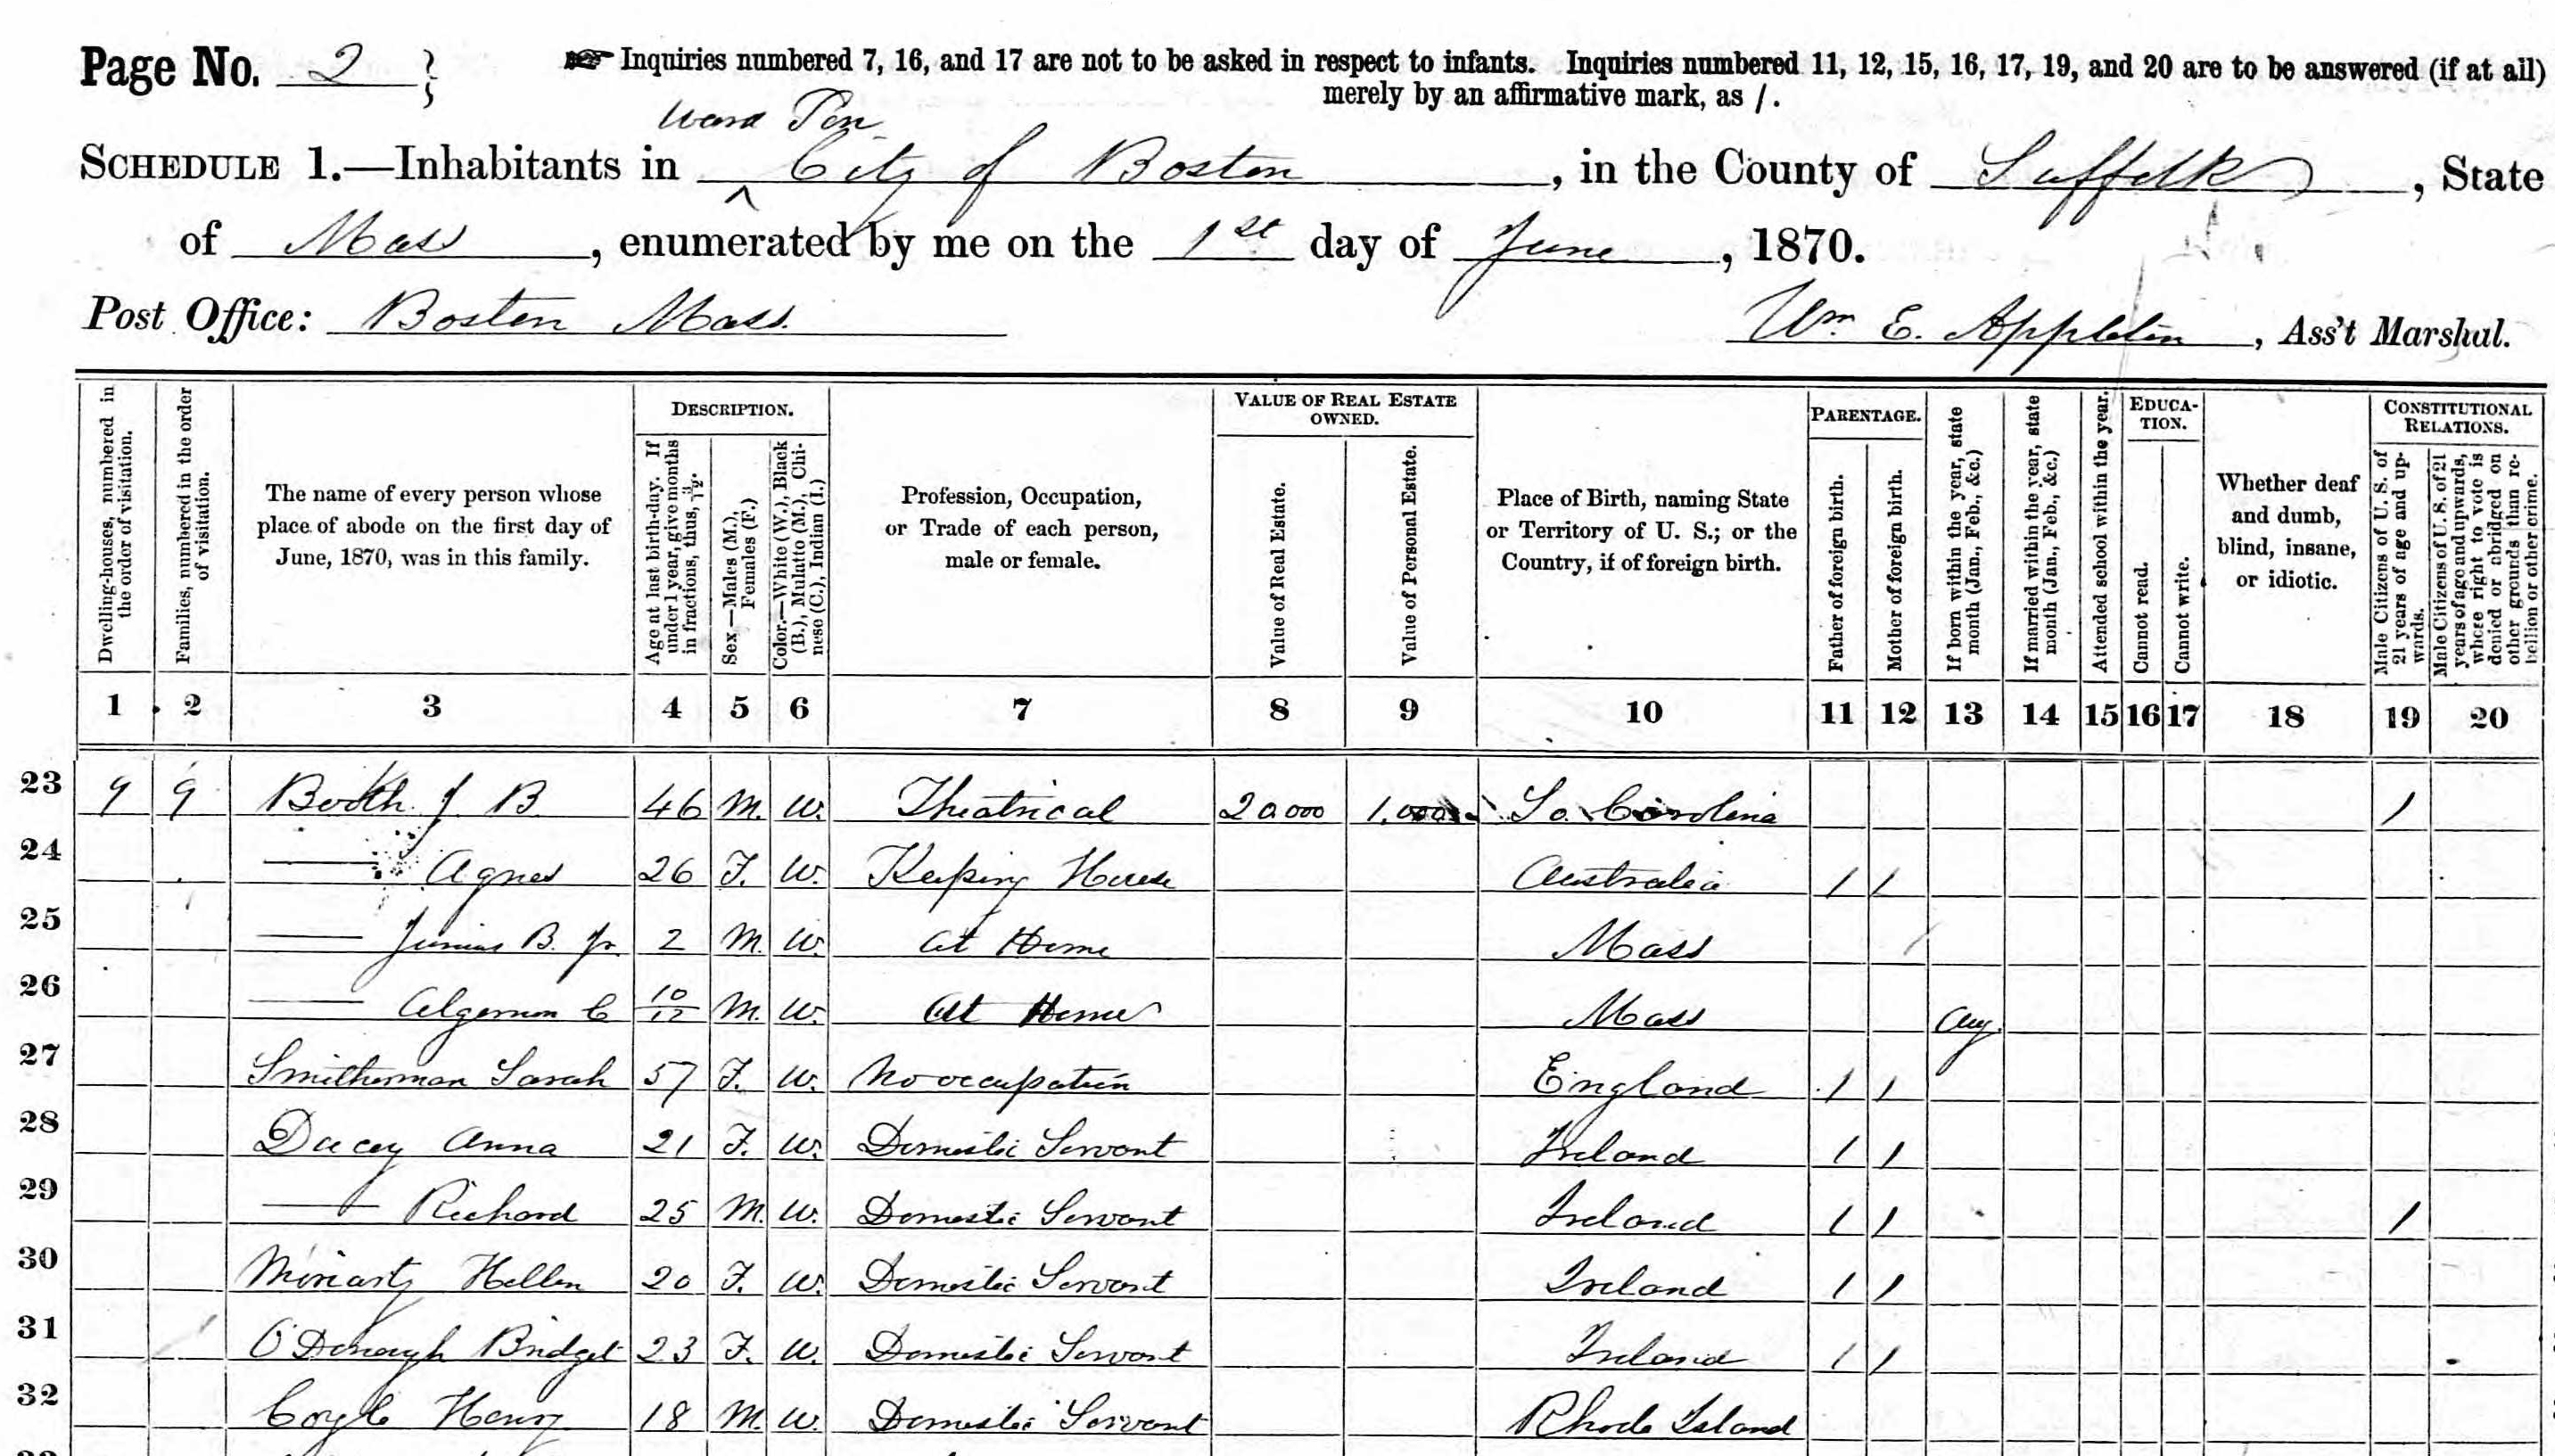 Page No. 2
☞ Inquiries numbered 7, 16, and 17 are not to be asked in respect to infants. Inquiries numbered 11, 12, 15, 16, 17, 19, and 20 are to be answered (if at all)
merely by an affirmative mark, as /.
Ward Ten
SCHEDULE 1.—Inhabitants in ^ City of Boston, in the County of Suffolk, State
of Mass, enumerated by me on the 1st day of June, 1870.
Post Office: Boston Mass.
Wm E. Appleton, Ass't Marshal.
Dwelling-houses, numbered in the order of visitation.
Families, numbered in the order of visitation.
The name of every person whose place of abode on the first day of June, 1870, was in this family.
DESCRIPTION.
Age at last birth-day. If under 1 year, give months in fractions, thus, 3/12.
Sex.—Males (M.), Females (F.)
Color.—White (W.), Black (B.), Mulatto (M.), Chinese (C.), Indian (I.)
Profession, Occupation, or Trade of each person, male or female.
VALUE OF REAL ESTATE OWNED.
Value of Real Estate.
Value of Personal Estate.
Place of Birth, naming State or Territory of U. S.; or the Country, if of foreign birth.
PARENTAGE.
Father of foreign birth.
Mother of foreign birth.
If born within the year, state month (Jan., Feb., &c.)
If married within the year, state month (Jan., Feb., &c.)
Attended school within the year.
EDUCATION.
Cannot read.
Cannot write.
Whether deaf and dumb, blind, insane, or idiotic.
CONSTITUTIONAL RELATIONS.
Male Citizens of U. S. of 21 years of age and upwards.
Male Citizens of U. S. of 21 years of age and upwards, where right to vote is denied or abridged on other grounds than rebellion or other crime.
1 2 3 4 5 6 7 8 9 10 11 12 13 14 15 16 17 18 19 20
23 9 9 Booth J. B. 46 M. W. Theatrical 20000 1,000 So. Carolina /
24 — Agnes 26 F. W. Keeping House Australia / /
25 — Junius B. Jr 2 M. W. At Home Mass
26 — Algernon C 10/12 M. W. At Home Mass Aug.
27 Smitherman Sarah 57 F. W. No occupation England / /
28 Dacey Anna 21 F. W. Domestic Servant Ireland / /
29 — Richard 25 M. W. Domestic Servant Ireland / / /
30 Moriarty Hellen 20 F. W. Domestic Servant Ireland / /
31 O'Donaugh Bridget 23 F. W. Domestic Servant Ireland / /
32 Coyle Henry 18 M. W. Domestic Servant Rhode Island